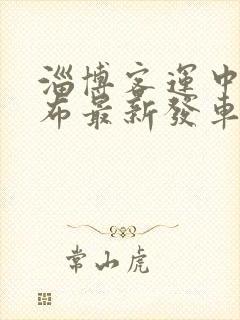 淄博客運中
布最新發車
常山虎